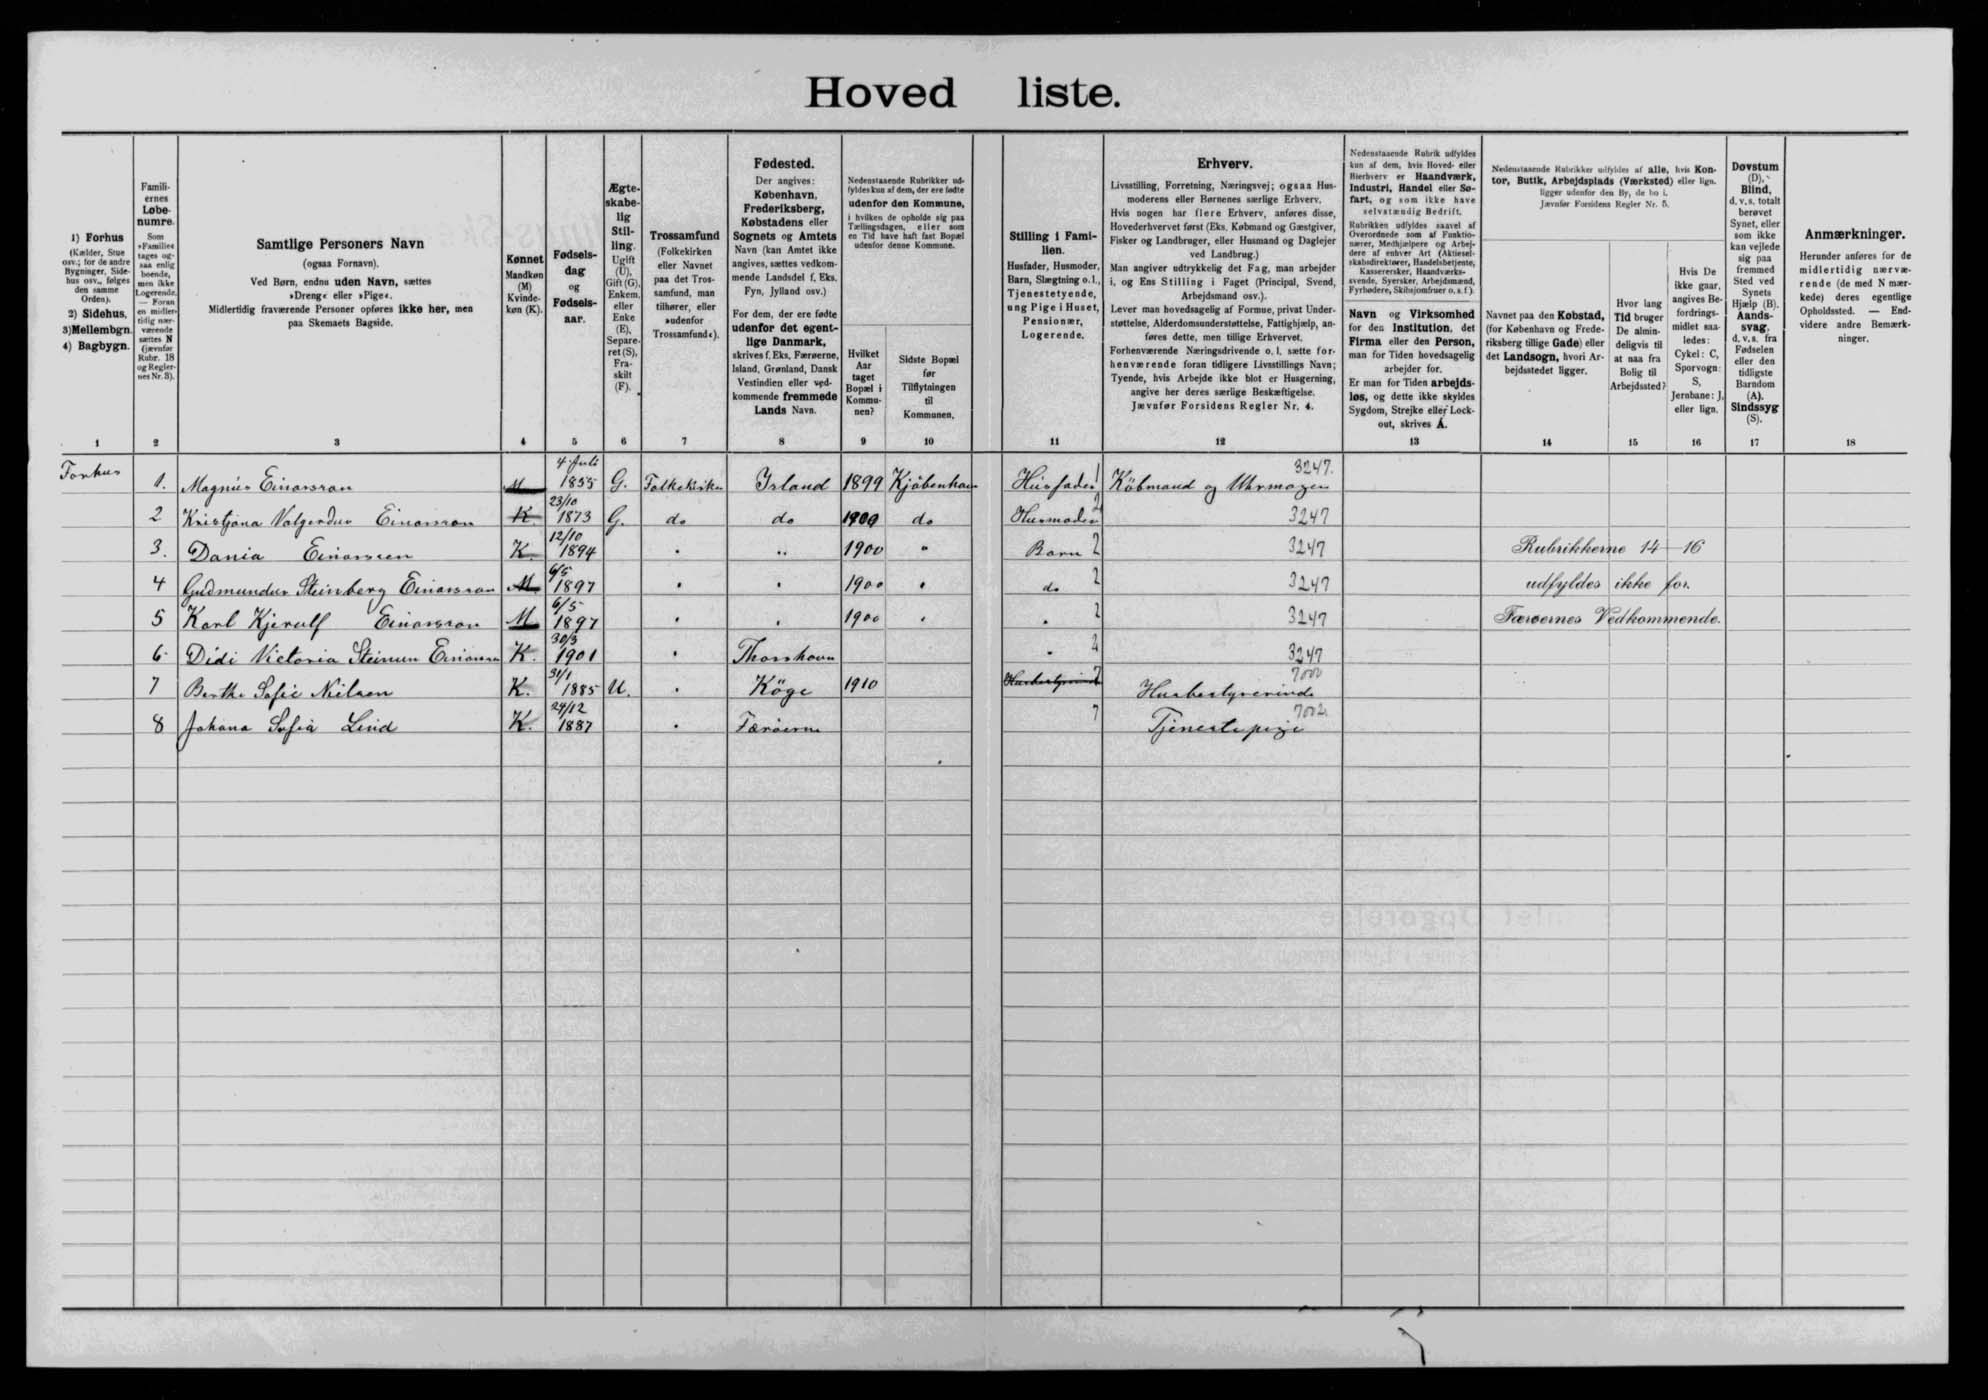 Hoved liste.
1) Forhus
(Kælder, Stue
osv.; for de andre
Bygninger, Side-
hus osv., følges
den samme
Orden).
2) Sidehus,
3) Mellembgn.
4) Bagbygn.
1
Famili-
ernes
Løbe-
numre.
Som
»Familie«
tages og-
saa enlig
boende,
men ikke
Logerende.
— Foran
en midler-
tidig nær-
værende
sættes N
(jævnfør
Rubr. 18
og Regler-
nes Nr. 3).
2
Samtlige Personers Navn
(ogsaa Fornavn).
Ved Børn, endnu uden Navn, sættes
»Dreng« eller »Pige«.
Midlertidig fraværende Personer opføres ikke her, men
paa Skemaets Bagside.
3
Kønnet
Mandkøn
(M)
Kvinde-
køn (K).
4
Fødsels-
dag
og
Fødsels-
aar.
5
Ægte-
skabe-
lig
Stil-
ling.
Ugift
(U),
Gift (G),
Enkem.
eller
Enke
(E),
Separe-
ret (S),
Fra-
skilt
(F).
6
Trossamfund
(Folkekirken
eller Navnet
paa det Tros-
samfund, man
tilhører, eller
»udenfor
Trossamfund«).
7
Fødested.
Der angives:
København,
Frederiksberg,
Købstadens eller
Sognets og Amtets
Navn (kan Amtet ikke
angives, sættes vedkom-
mende Landsdel f. Eks.
Fyn, Jylland osv.)
For dem, der ere fødte
udenfor det egent-
lige Danmark,
skrives f. Eks. Færøerne,
Island, Grønland, Dansk
Vestindien eller ved-
kommende fremmede
Lands Navn.
8
Nedenstaaende Rubrikker ud-
fyldes kun af dem, der ere fødte
udenfor den Kommune,
i hvilken de opholde sig paa
Tællingsdagen, eller som
en Tid have haft fast Bopæl
udenfor denne Kommune.
Hvilket
Aar
taget
Bopæl i
Kommu-
nen?
9
Sidste Bopæl
før
Tilflytningen
til
Kommunen.
10
Stilling i Fami-
lien.
Husfader, Husmoder,
Barn, Slægtning o. l.,
Tjenestetyende,
ung Pige i Huset,
Pensionær,
Logerende.
11
Erhverv.
Livsstilling, Forretning, Næringsvej; ogsaa Hus-
moderens eller Børnenes særlige Erhverv.
Hvis nogen har flere Erhverv, anføres disse,
Hovederhvervet først (Eks. Købmand og Gæstgiver,
Fisker og Landbruger, eller Husmand og Daglejer
ved Landbrug.)
Man angiver udtrykkelig det Fag, man arbejder
i, og Ens Stilling i Faget (Principal, Svend,
Arbejdsmand osv.).
Lever man hovedsagelig af Formue, privat Under-
støttelse, Alderdomsunderstøttelse, Fattighjælp, an-
føres dette, men tillige Erhvervet.
Forhenværende Næringsdrivende o. l. sætte for-
henværende foran tidligere Livsstillings Navn;
Tyende, hvis Arbejde ikke blot er Husgerning,
angive her deres særlige Beskæftigelse.
Jævnfør Forsidens Regler Nr. 4.
12
Nedenstaaende Rubrik udfyldes
kun af dem, hvis Hoved- eller
Bierhverv er Haandværk,
Industri, Handel eller Sø-
fart, og som ikke have
selvstændig Bedrift.
Rubrikken udfyldes saavel af
Overordnede som af Funktio-
nærer, Medhjælpere og Arbej-
dere af enhver Art (Aktiesel-
skabsdirektører, Handelsbetjente,
Kassererersker, Haandværks-
svende, Syersker, Arbejdsmænd,
Fyrbødere, Skibsjomfruer o. s. f.).
Navn og Virksomhed
for den Institution, det
Firma eller den Person,
man for Tiden hovedsagelig
arbejder for.
Er man for Tiden arbejds-
løs, og dette ikke skyldes
Sygdom, Strejke eller Lock-
out, skrives A.
13
Nedenstaaende Rubrikker udfyldes af alle, hvis Kon-
tor, Butik, Arbejdsplads (Værksted) eller lign.
ligger udenfor den By, de bo i.
Jævnfør Forsidens Regler Nr. 5.
Navnet paa den Købstad,
(for København og Frede-
riksberg tillige Gade) eller
det Landsogn, hvori Ar-
bejdsstedet ligger.
14
Hvor lang
Tid bruger
De almin-
deligvis til
at naa fra
Bolig til
Arbejdssted?
15
Hvis De
ikke gaar,
angives Be-
fordrings-
midlet saa-
ledes:
Cykel: C,
Sporvogn:
S,
Jernbane: J,
eller lign.
16
Døvstum
(D),
Blind,
d. v. s. totalt
berøvet
Synet, eller
som ikke
kan vejlede
sig paa
fremmed
Sted ved
Synets
Hjælp (B).
Aands-
svag,
d. v. s. fra
Fødselen
eller den
tidligste
Barndom
(A).
Sindssyg
(S).
17
Anmærkninger.
Herunder anføres for de
midlertidig nærvæ-
rende (de med N mær-
kede) deres egentlige
Opholdssted. — End-
videre andre Bemærk-
ninger.
18
Forhus 1. Magnús Einarsson M 4 Juli 1855 G. Folkekirken Island 1899 Kjøbenhavn Husfader 1 Købmand og Uhrmager 3247.
2 Kristjana Valgerdur Einarsson K. 23/10 1873 G. do do 1900 do Husmoder 2 3247
3. Dania Einarsson K. 12/10 1894 " " 1900 " Barn 2 3247 Rubrikkerne 14-16
4 Gudmundur Steinberg Einarsson M 6/5 1897 " " 1900 " do 2 3247 udfyldes ikke for
5 Karl Kjerulf Einarsson M 6/5 1897 " " 1900 " " 2 3247 Færøernes Vedkommende.
6 Didi Victoria Steinun Einarsson K. 30/3 1901 " Thorshavn " 2 3247
7 Berthe Sofie Nielsen K. 31/1 1885 U. " Köge 1910 Husbestyrerinde 7 Husbestyrerinde 7000
8 Johana Sofia Lind K. 24/12 1887 " Færöerne 7 Tjenestepige 7002